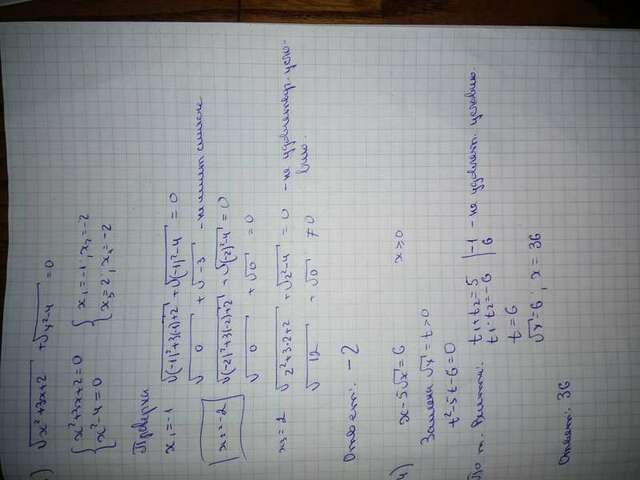 ) √(x²+3x+2) + √(x²-4) = 0
{ x²+3x+2=0 { x₁=-1; x₂=-2
{ x²-4=0 { x₃=2; x₄=-2
Проверка
x₁=-1 √((-1)²+3(-1)+2) + √((-1)²-4) = 0
√0 + √-3 - не имеет смысла
x₂=-2 √((-2)²+3(-2)+2) + √((-2)²-4) = 0
√0 + √0 = 0
x₃=2 √(2²+3·2+2) + √(2²-4) = 0 - не удовлетвор. усло-
вию.
√12 + √0 ≠ 0
Ответ: -2
4) x-5√x=6 x≥0
Замена √x=t>0
t²-5t-6=0
По т. Виета: t₁+t₂=5 | -1 - не удовлет. условию.
t₁·t₂=-6 | 6
t=6
√x=6; x=36
Ответ: 36